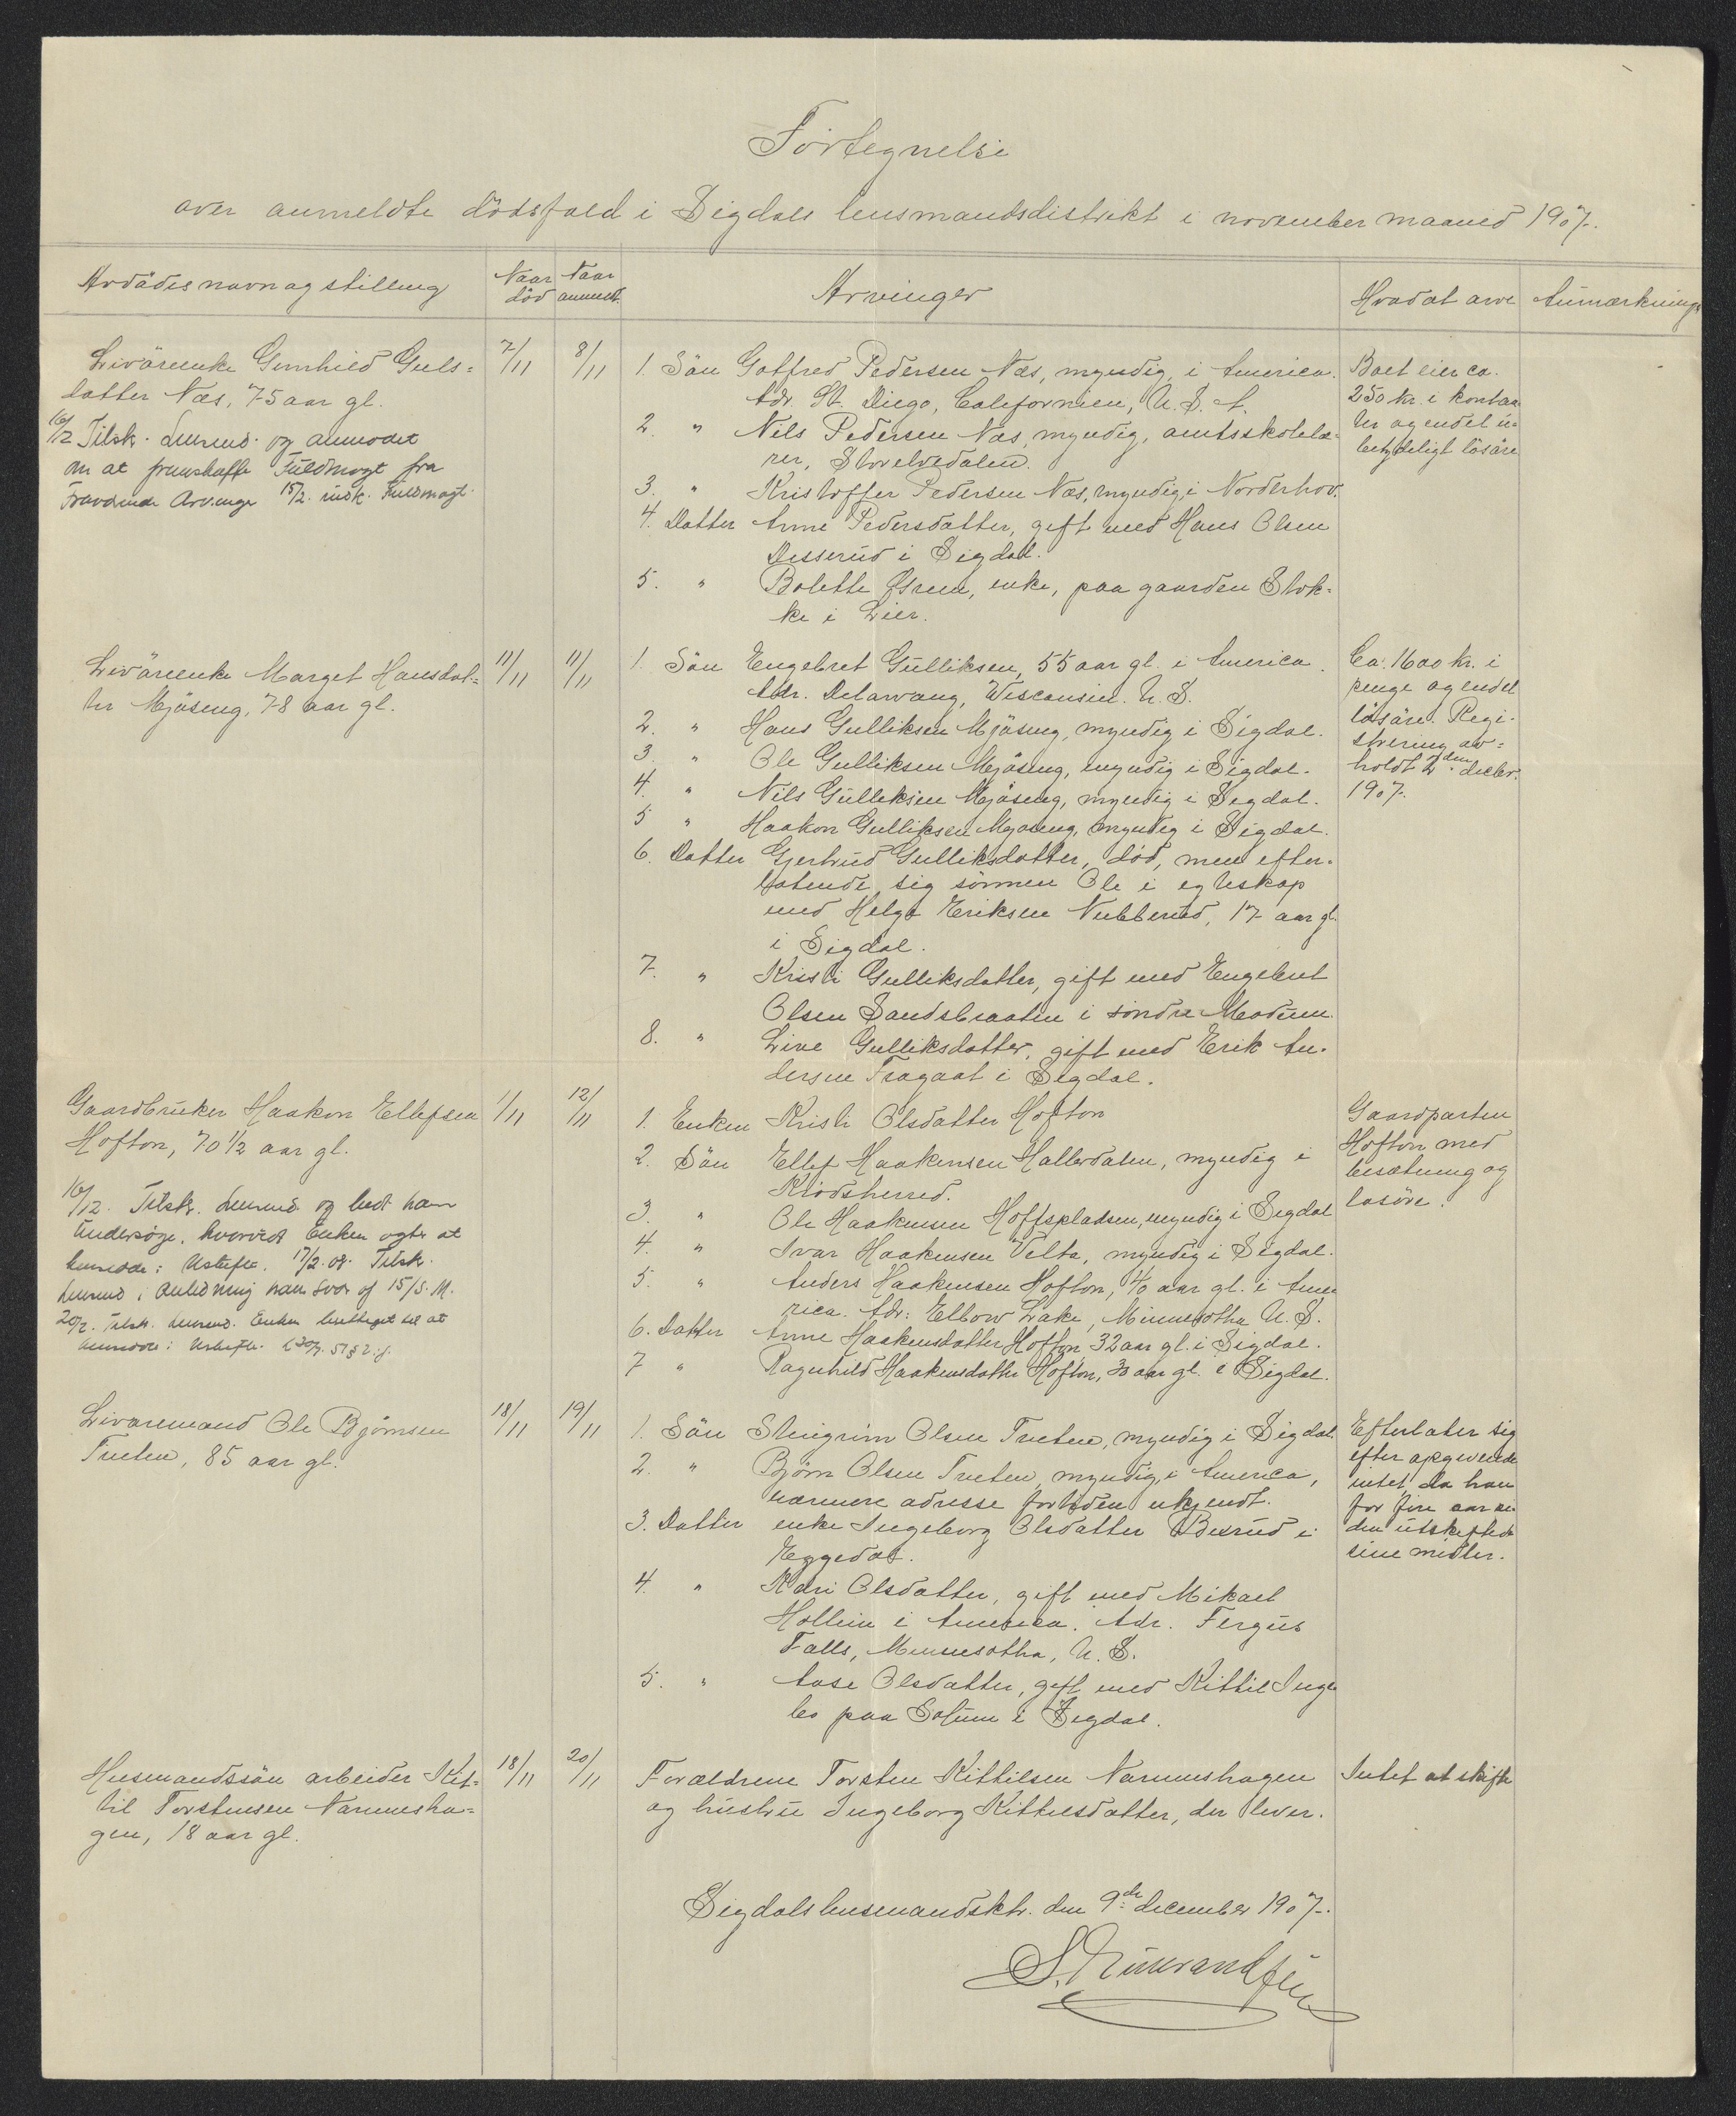 Fortegnelse
over anmeldte dödsfald i Sigdals lensmandsdistrikt i november maaned 1907.
Avdödes navn og stilling
Naar död
Naar anmeldt
Arvinger
Hvad at arve
Anmærkninger
Livöreenke Gunhild Guls=
datter Næs, 75 aar gl.
7/11
8/11
16/12 Tilsk. Lensmd. og anmodet
om at fremskaffe Fuldmagt fra
Fraværende Arvinge 15/2. indk. Fuldmagt.
1. Sön Gotfred Pedersen Næs, myndig, i America.
Adr. St. Diego, Californien, U. S. A.
2. " Nils Pedersen Næs, myndig, amtsskolelæ=
rer, Slovelvedalen.
3. " Kristoffer Pedersen Næs, myndig, i Norderhov.
4. Datter Anne Pedersdatter, gift med Hans Olsen
Desserud i Sigdal.
5. " Bolette enke, paa gaarden Stok=
ke i Lier.
Boet eier ca.
250 kr. i kontan
ter og endel u=
betydeligt lösöre
Livöreenke Marget Hansdat=
ter Mjöseng, 78 aar gl.
11/11
11/11
1. Sön Engebret Gulliksen, 55 aar gl. i America.
Adr. Delawang, Wisconsin. U. S.
2. " Hans Gulliksen Mjöseng, myndig i Sigdal.
3. " Ole Gulliksen Mjöseng, myndig i Sigdal.
4. " Nils Gulliksen Mjöseng, myndig i Sigdal.
5 " Haakon Gulliksen Mjöseng, myndig i Sigdal.
6. Datter Gjertrud Gulliksdatter, död, men efter=
latende sig sönnen Ole i egteskap
med Helge Eriksen Nubberud, 17 aar gl.
i Sigdal.
7. " Kristi Gulliksdatter, gift med Engebret
Olsen Sandsbraaten i söndre Modum.
8. " Live Gulliksdatter, gift med Erik An=
dersen Fragaat i Sigdal.
Ca. 1600 kr. i
penge og endel
lösöre. Regi=
strering av=
holdt decbr.
1907.
Gaardbruker Haakon Ellefsen
Hofton, 70 1/2 aar gl.
1/11
12/11
16/12. Tilsk. Lensmd. og bedt ham
undersøge, hvorvidt Enken agter at
hensidde i Uskifte. 17/2.08. Tilsk.
Lensmd i Anledning hans Svar af 15/S. M.
20/2. Tilsk. Lensmd. Enken berettiget til at
hensidde i Uskifte.
1. Enken Kristi Olsdatter Hofton
2. Sön Ellef Haakensen Hallerdalen, myndig i
Krödsherred.
3. " Ole Haakensen Hoffspladsen, myndig i Sigdal
4. " Ivar Haakensen Velta, myndig i Sigdal.
5. " Anders Haakensen Hofton, 40 aar gl. i Ame
rica. Adr: Elbow Lake, Minnesotha U. S.
6. Datter Anne Haakensdatter Hofton, 32 aar gl. i Sigdal.
7 " Ragnhild Haakensdatter Hofton, 30 aar gl. i Sigdal.
Gaardparten
Hofton med
besætning og
lösöre.
Livöremand Ole Björnsen
Tveten, 85 aar gl.
18/11
19/11
1. Sön Stengrim Olsen Tveten, myndig i Sigdal.
2. " Björn Olsen Tveten, myndig, i America,
nærmere adresse fortiden ukjendt.
3. Datter enke Ingeborg Olsdatter Burud i
Eggedal.
4. " Kari Olsdatter, gift med Mikael
Hollein i America. Adr. Fergus
Falls, Minnesotha, U. S.
5. " Aase Olsdatter, gift med Kittil Ingle
bo paa Solum i Sigdal.
Efterlater sig
efter opgivende
intet, da han
for fire aar si=
den utskiftede
sine midler.
Husmandssön arbeider Kit=
til Torstensen Narumsha=
gen, 18 aar gl.
18/11
20/11
Forældrene Torsten Kittilsen Narumshagen
og hustru Ingeborg Kittilsdatter, der lever.
Intet at skifte
Sigdals lensmandsktr. den 9de december 1907.